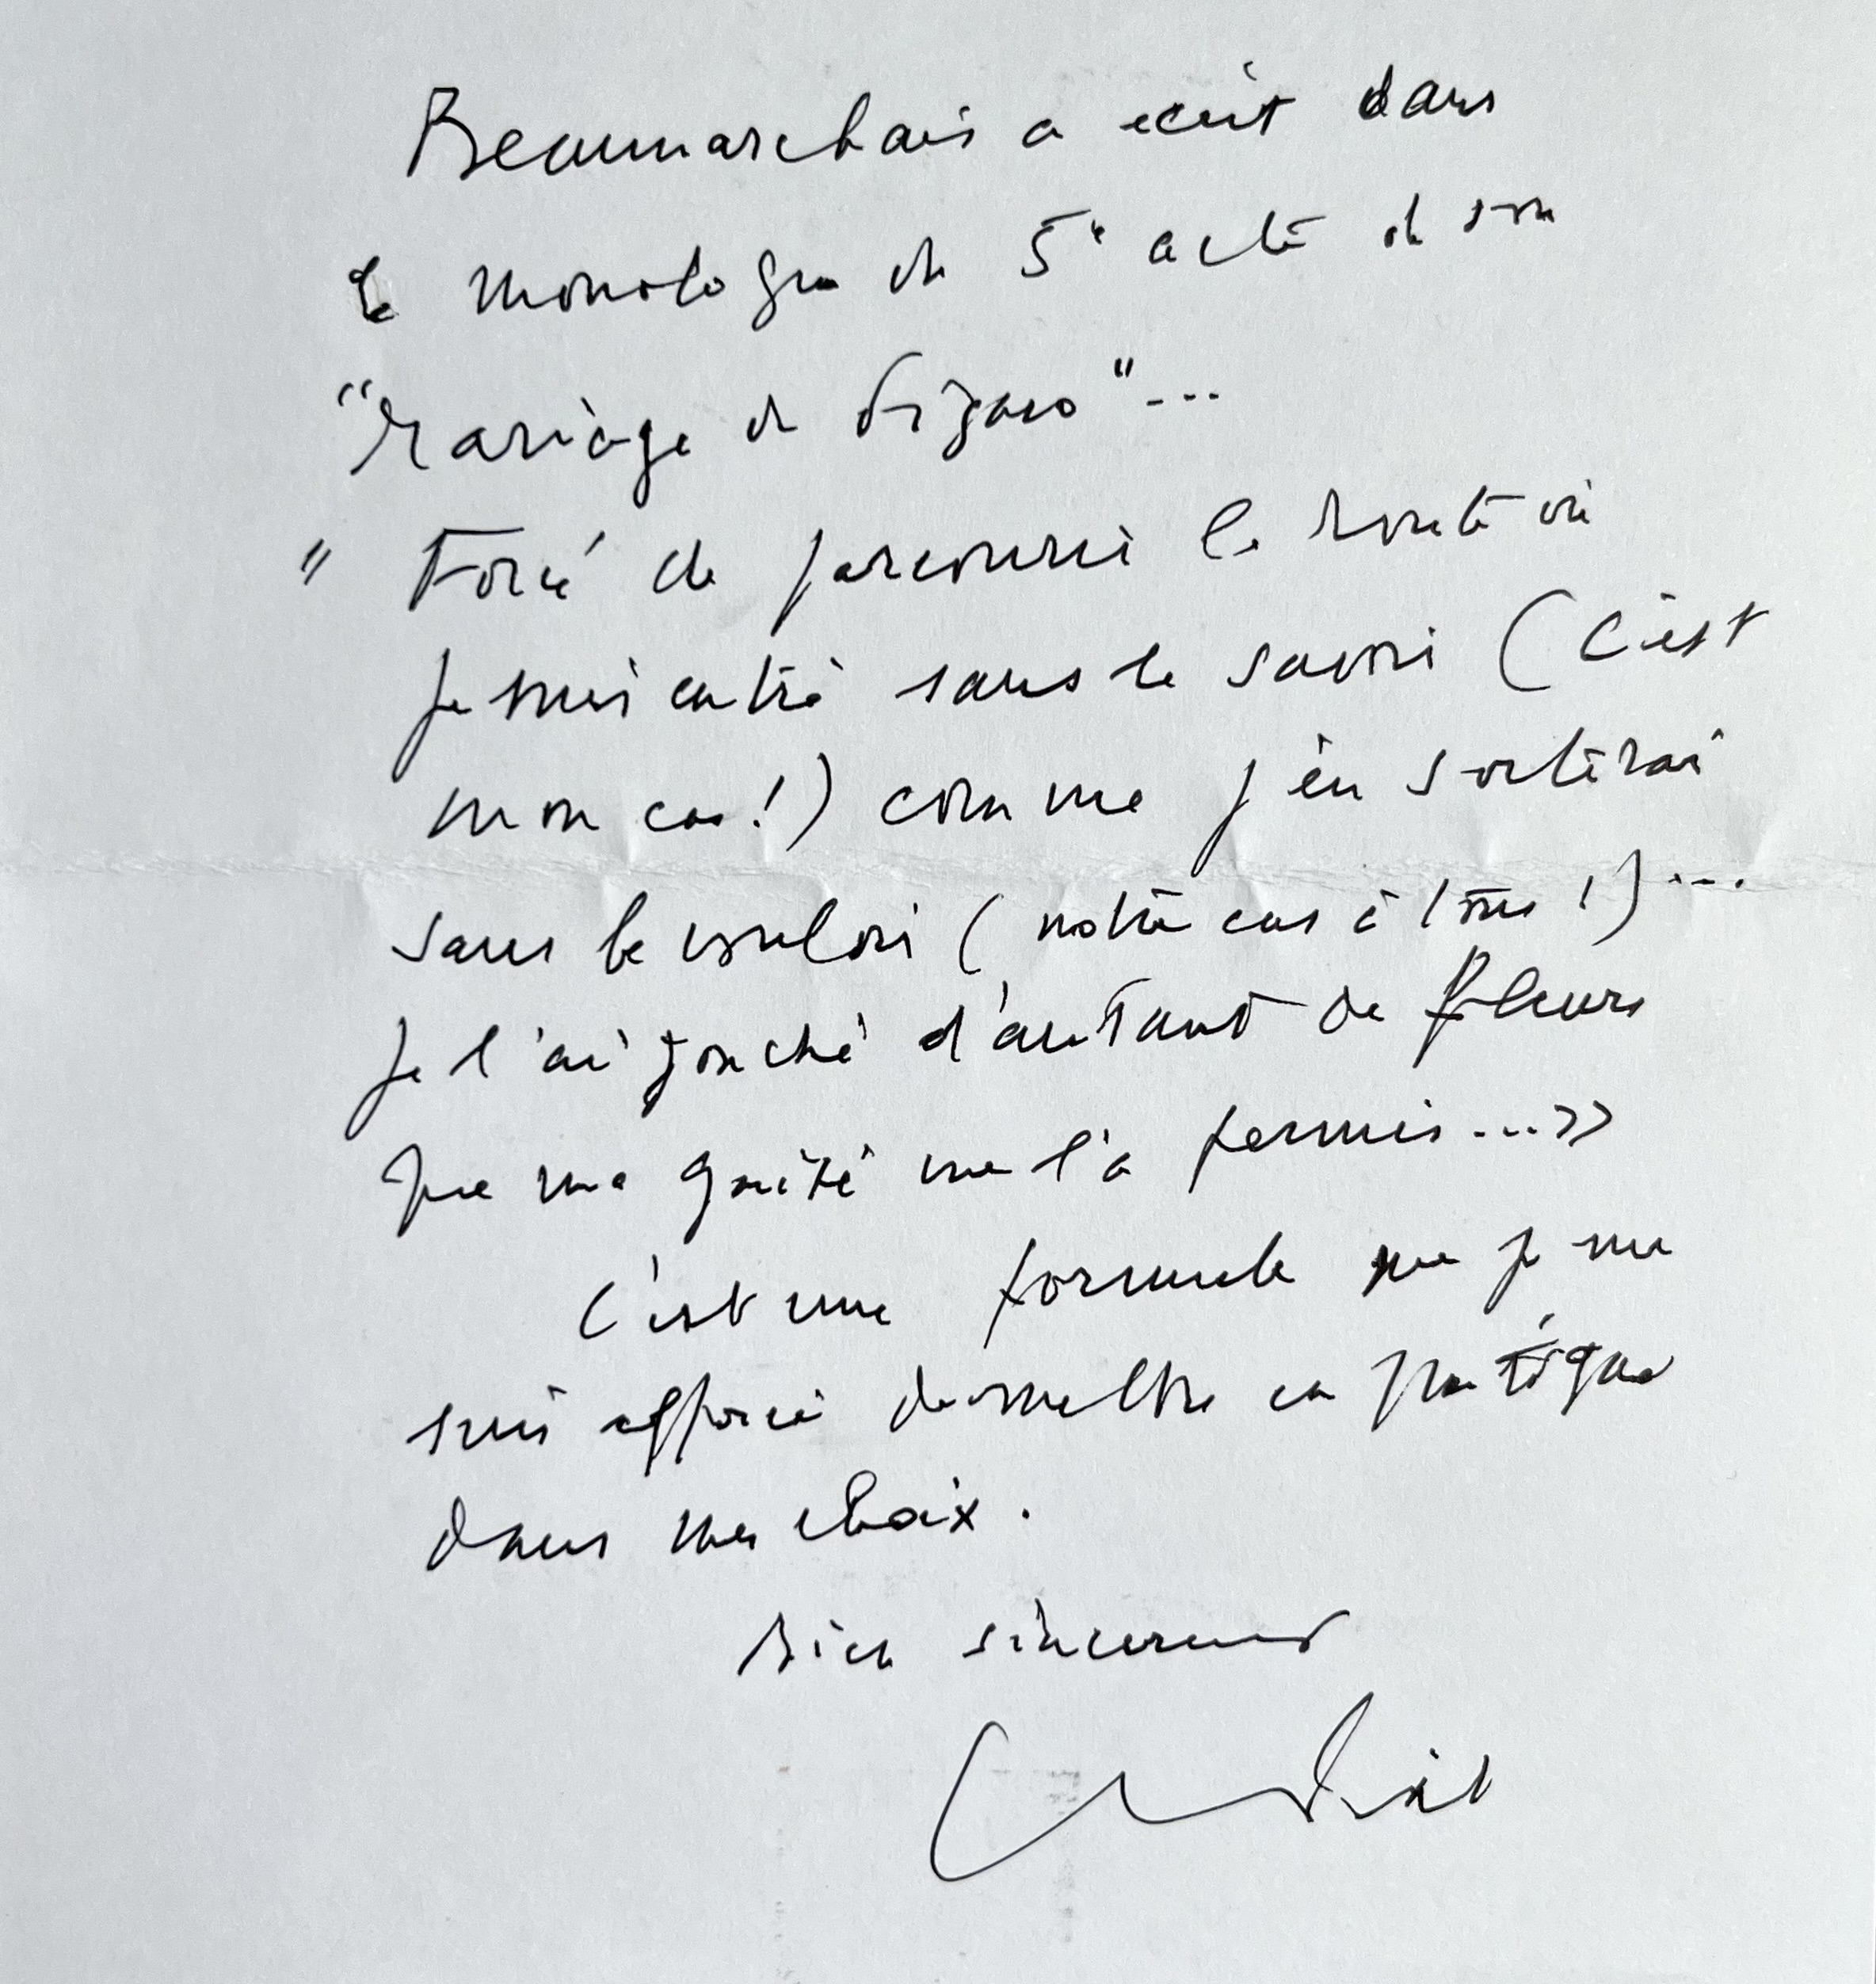 Beaumarchais a écrit dans
le monologue du 5e acte de son
"Mariage de Figaro"...
" Forcé de parcourir la route où
je suis entré sans le savoir (c'est
mon cas!) comme j'en sortirai
sans le vouloir (notre cas à tous !)...
Je l'ai jonché d'autant de fleurs
que ma gaité me l'a permis...»
C'est une formule que je me
suis efforcé de mettre en pratique
dans mes choix.
Bien sincèrement